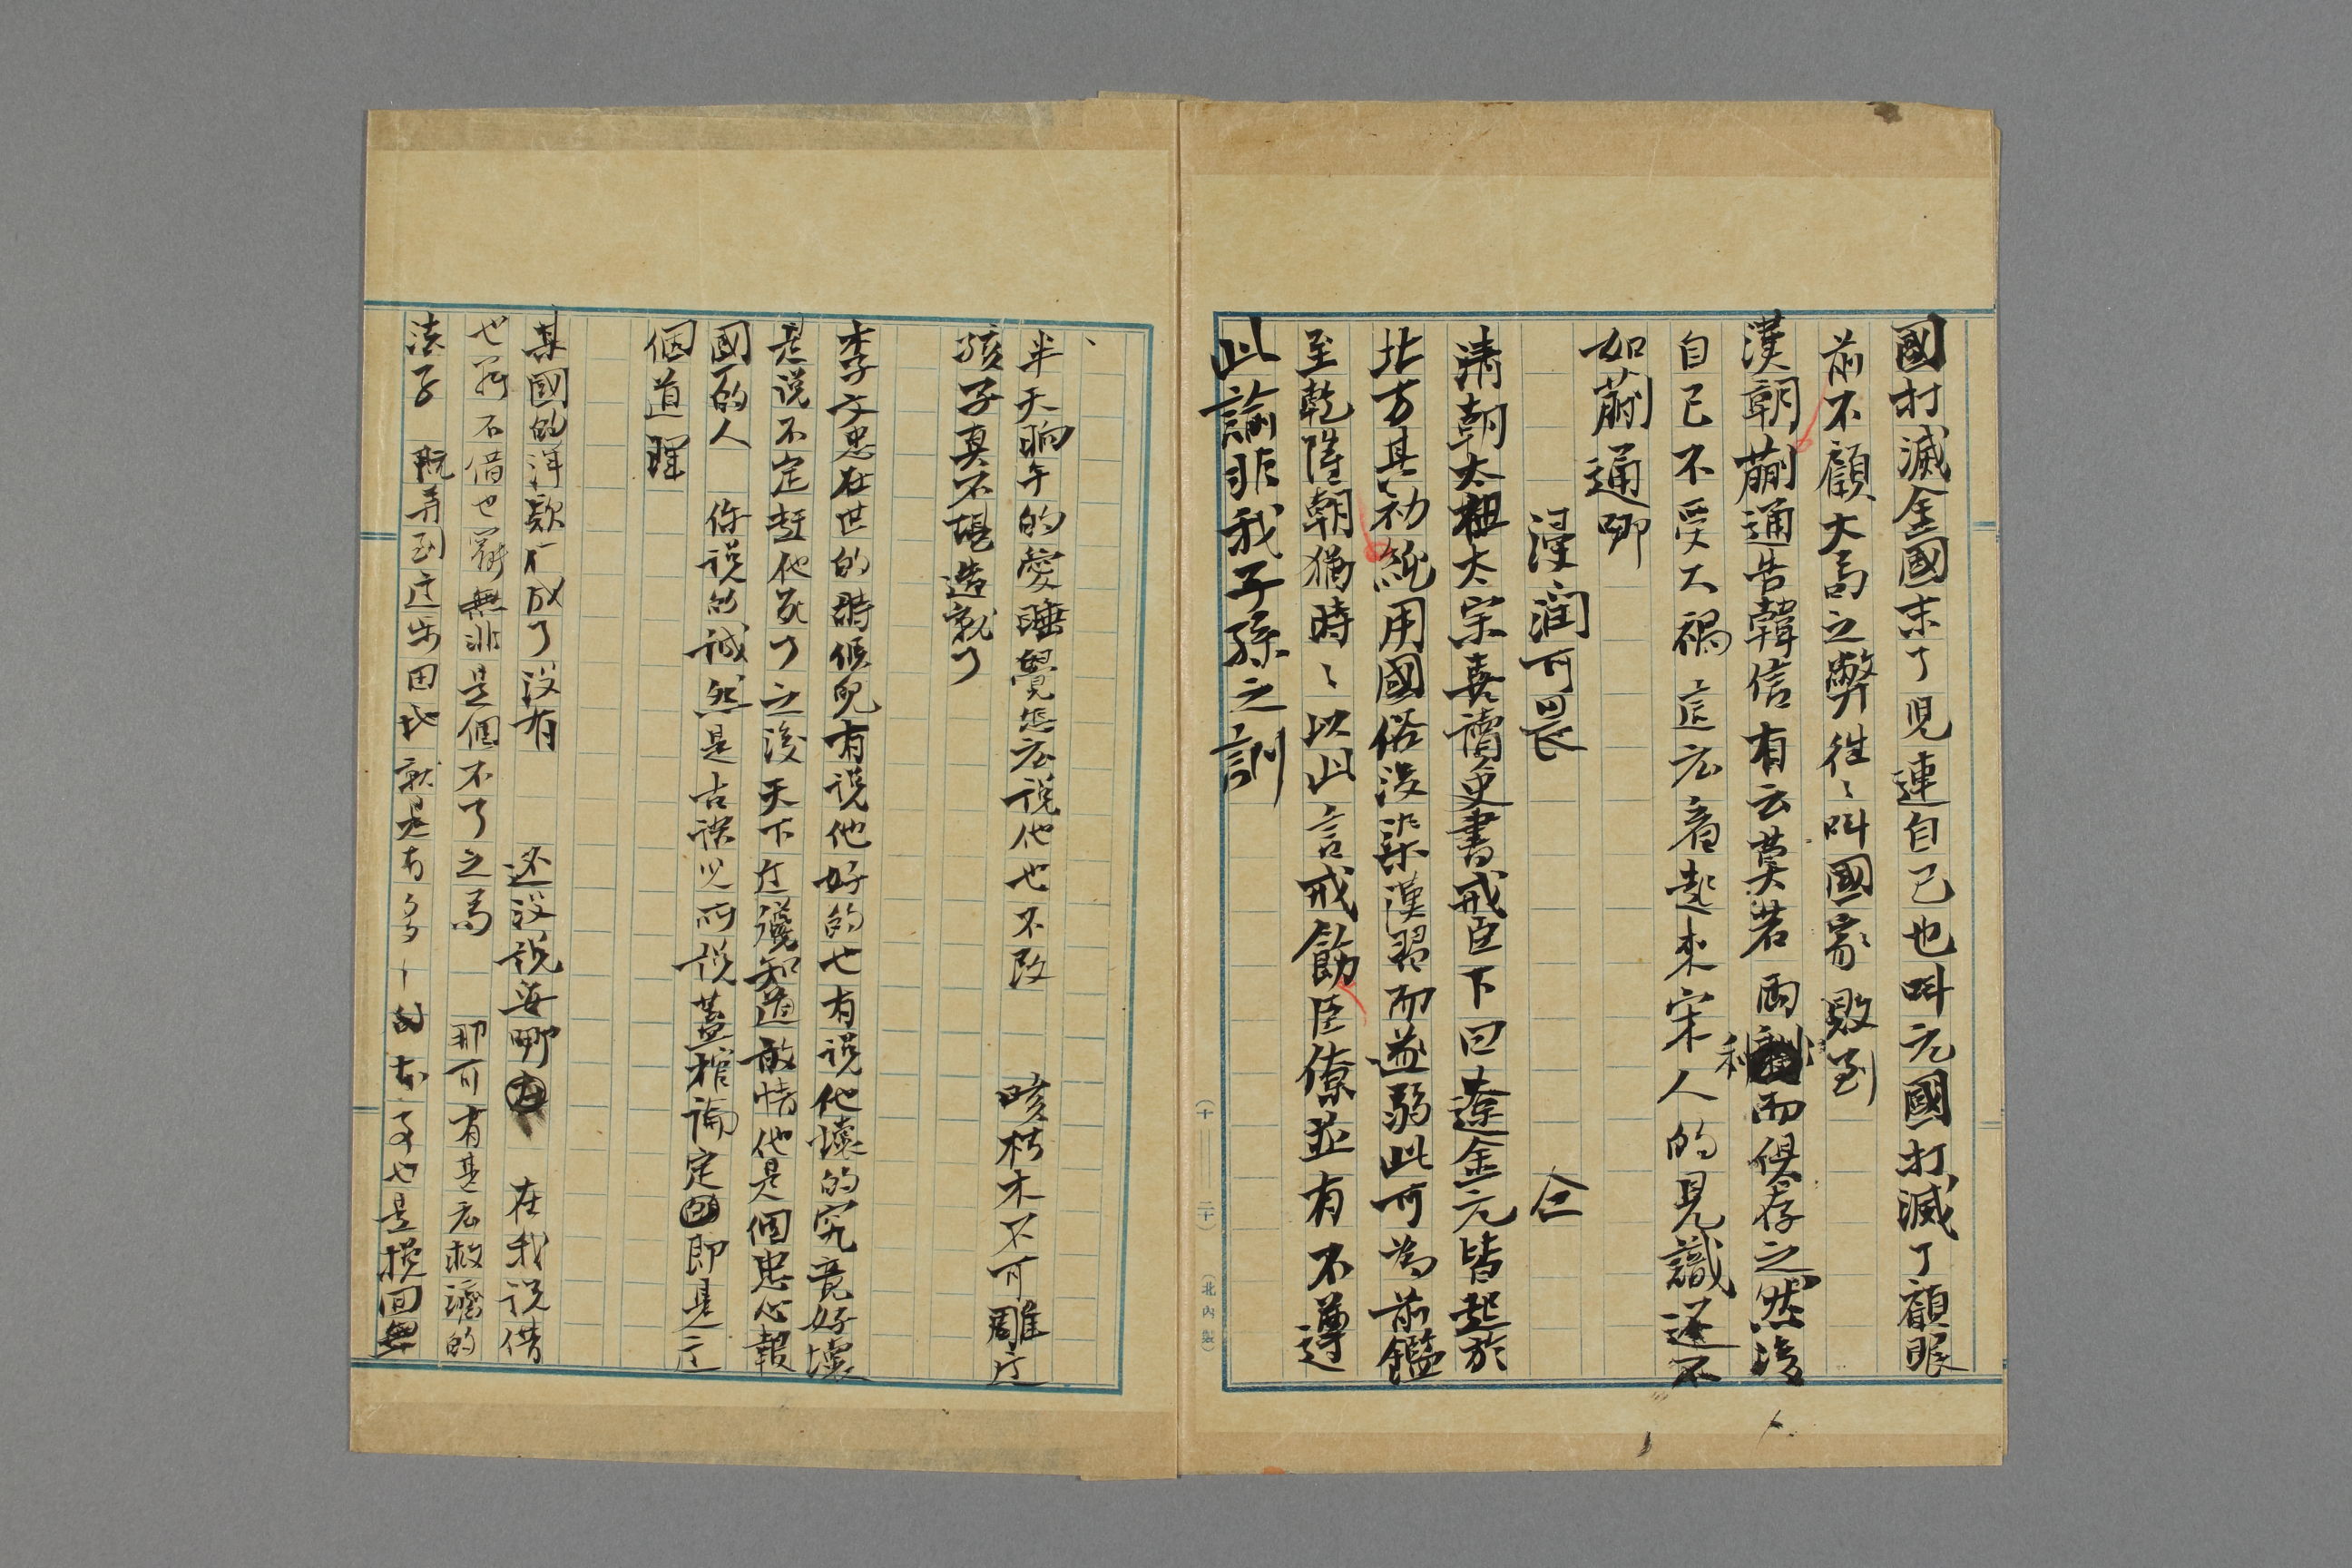 國打滅金國末了児連自己也叫元國打滅了顧眼
前不顧大局之弊徃〻叫國家敗到
漢朝蒯通告韓信有云莫若両利而俱存之然後
自己不受大禍這広看起来宋人的見識還不
如蒯通哪
浸润可畏 仝
清朝太祖太宗喜讀史書戒臣下曰遼金元皆起於
北方其初純用國俗後染漢習而遂弱此可為前鑑
至乾隆朝猶時〻以此言戒飭臣僚並有不遵
此諭非我子孫之訓
半天晌午的愛睡覺怎広説他也不改 咳朽木不可雕這
孩子真不堪造就了
李文忠在世的時候児有説他好的也有説他壞的究竟好壞
是説不定趕他死了之後天下這纔知道敢情他是個忠心報
國的人 你説的誠然是古語児所説蓋棺論定即是这
個道理
某國的洋款借成了没有 还没説妥哪 在我説借
也罷不借也罷無非是個不了之局 那可有甚広救濟的
法子 既弄到这步田地就是有多少的本事也是挽回無
(十——二十) (北內製)